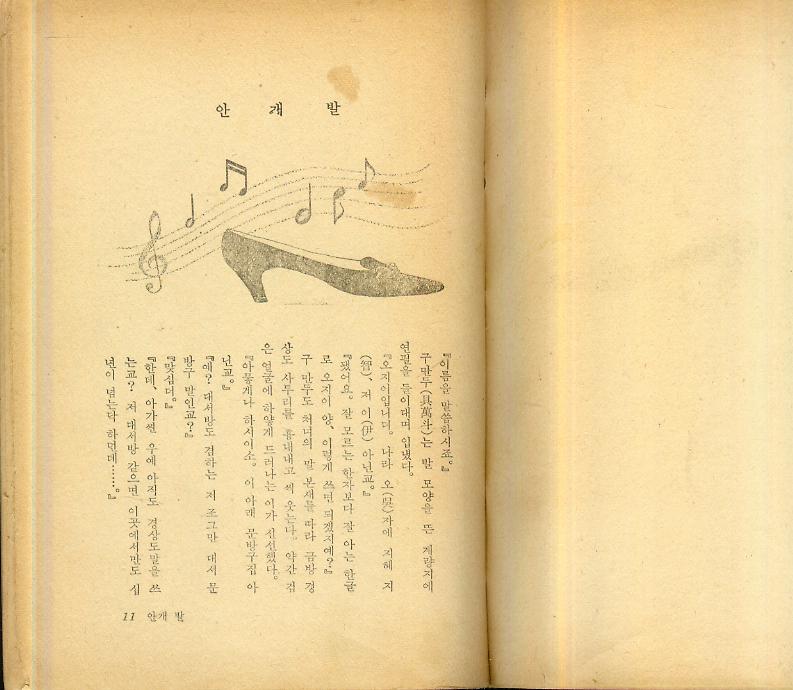 안개발
『이름을 말씀하시죠。』
구만두(具萬斗)는 발 모양을 뜬 계량지에
연필을 들이대며 입냈다。
『오지이입니더。나라 오(吳)자에 지혜 지
(智)、저 이(伊) 아닌교。』
『됐어요。잘 모르는 한자보다 잘 아는 한글
로 오지이 양、이렇게 쓰면 되겠지예?』
구 만두도 처녀의 말 본새를 따라 금방 경
상도 사투리를 흉내내고 씩 웃는다。약간 검
은 얼굴에 하얗게 드러나는 이가 신선했다。
『아뭏게나 하시이소。이 아래 문방구집 아
닌교。』
『예? 대서방도 겸하는 저 조그만 대서 문
방구 말인교?』
『맞심더。』
『한데、아가씬 우예 아직도 경상도말을 쓰
는교? 저 대서방 같으면 이곳에서만도 십
년이 넘는다 하던데……。』
11 안개 발